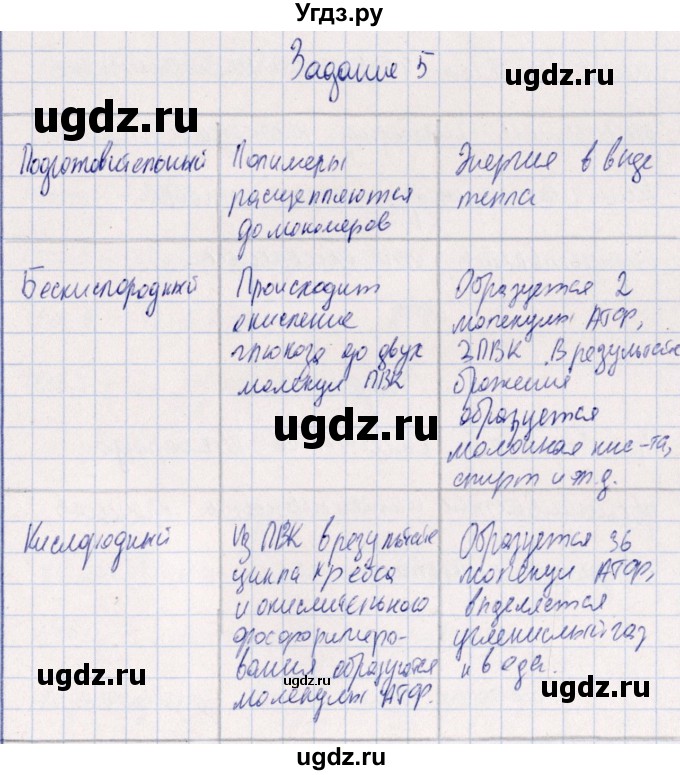 Угдз.ру
Задание 5
ugdz.ru
ugdz.ru
Подготовительный
Полимеры
расщепляются
до мономеров
Энергия в виде
тепла
Бескислородный
Происходит
окисление
глюкоза до двух
молекул ПВК
Образуется 2
молекулы АТФ,
2ПВК. В результате
брожения
образуется
молочная кис-та,
спирт и т.д.
ugdz.ru
Кислородный
Из ПВК в результате
цикла Кребса
и окислительного
фосфорилиро-
вания образуются
молекулы АТФ.
Образуется 36
молекул АТФ,
выделяется
углекислый газ
и вода.
ugdz.ru
ugdz.ru
ugdz.ru
ugdz.ru